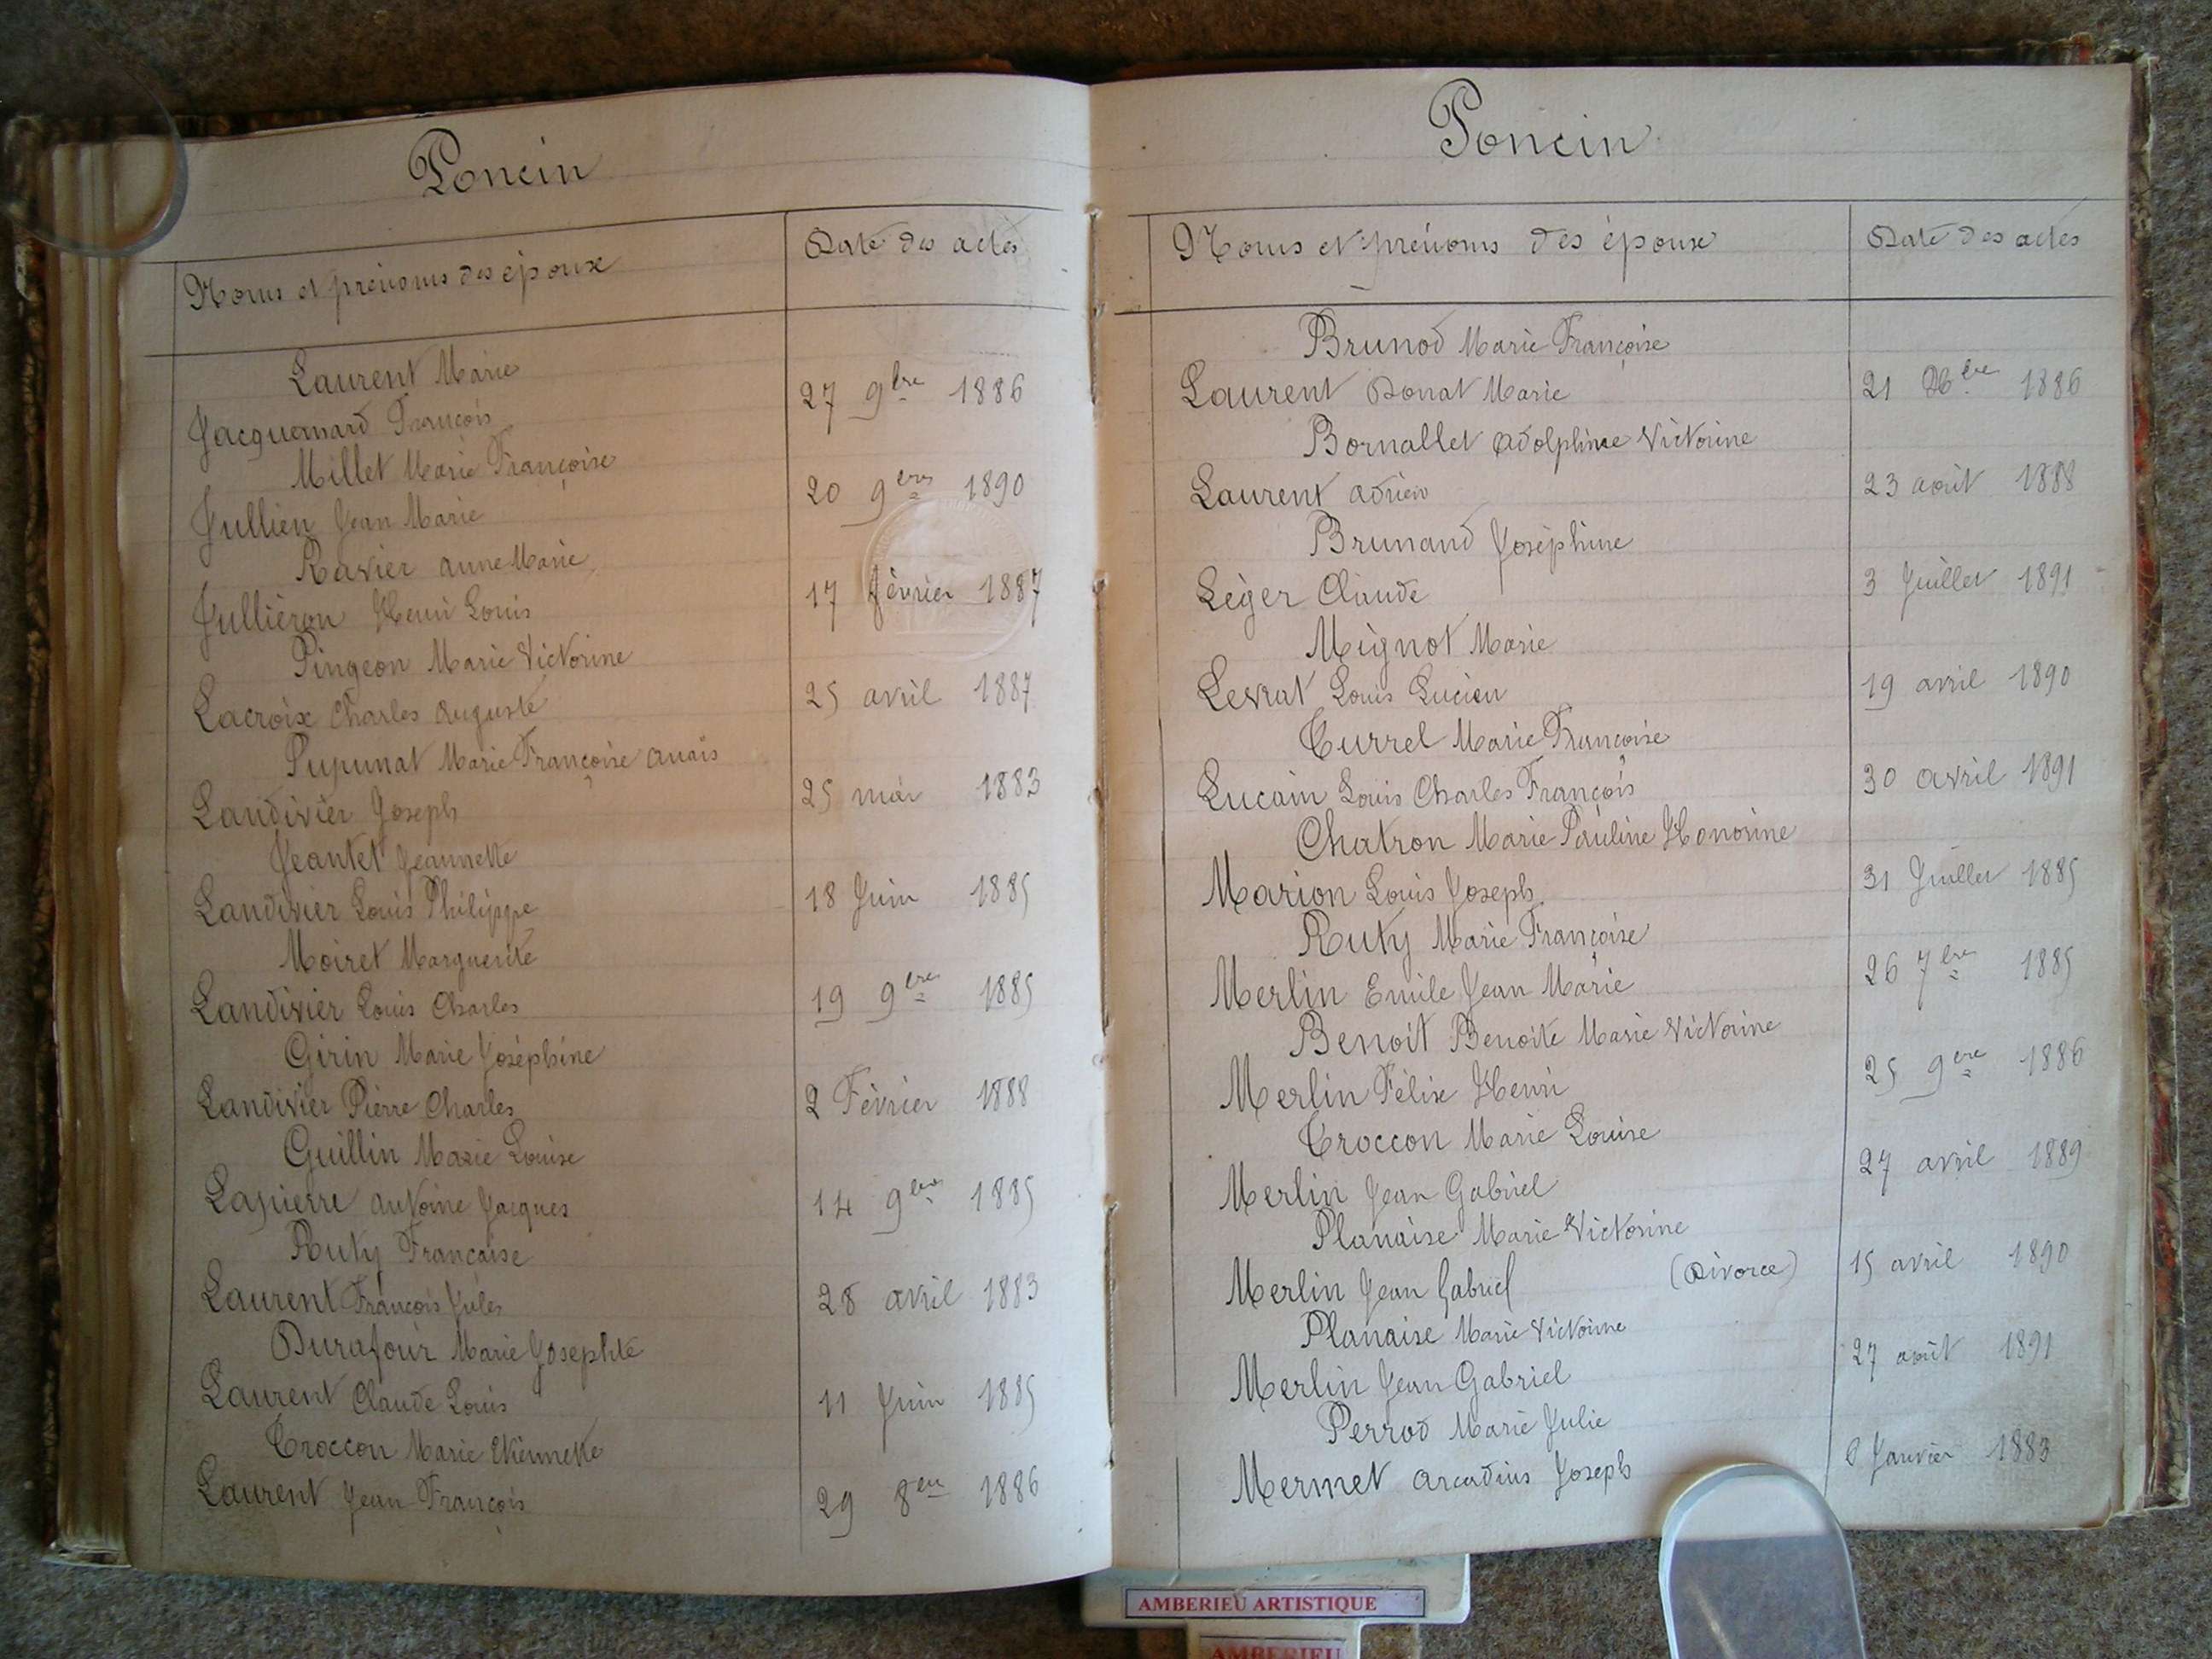 Poncin
Noms et prénoms des époux
Date des actes
Laurent Marie
Jacquemard François
27 9bre 1886
Millet Marie Françoise
Jullien Jean Marie
20 9bre 1890
Ravier Anne Marie
Julliéron Henri Louis
17 février 1887
Pingeon Marie Victorine
Lacroix Charles Auguste
25 avril 1887
Pupunat Marie Françoise Anaïs
Landivier Joseph
25 mai 1883
Jeantet Jeannette
Landivier Louis Philippe
18 Juin 1885
Moiret Marguerite
Landivier Louis Charles
19 9bre 1885
Girin Marie Joséphine
Landivier Pierre Charles
2 Février 1888
Guillin Marie Louise
Lapierre Antoine Jacques
14 9bre 1885
Ruty Francaise
Laurent François Jules
28 avril 1883
Durafour Marie Josephte
Laurent Claude Louis
11 Juin 1885
Troccon Marie Etiennette
Laurent Jean François
29 8bre 1886
Poncin
Noms et prénoms des époux
Date des actes
Brunod Marie Françoise
Laurent Donat Marie
21 Xbre 1886
Bornallet Adolphine Victorine
Laurent Adrien
23 août 1888
Brunand Joséphine
Léger Claude
3 Juillet 1891
Mignot Marie
Levrat Louis Lucien
19 avril 1890
Turrel Marie Françoise
Lucain Louis Charles François
30 avril 1891
Chatron Marie Pauline Honorine
Marion Louis Joseph
31 Juillet 1885
Ruty Marie Françoise
Merlin Emile Jean Marie
26 7bre 1885
Benoit Benoite Marie Victorine
Merlin Félix Henri
25 9bre 1886
Troccon Marie Louise
Merlin Jean Gabriel
27 avril 1889
Planaise Marie Victorine
Merlin Jean Gabriel (Divorce)
15 avril 1890
Planaise Marie Victorine
Merlin Jean Gabriel
27 août 1891
Perrod Marie Julie
Mermet Arcadius Joseph
Janvier 1883
AMBERIEU ARTISTIQUE
AMBERIEU